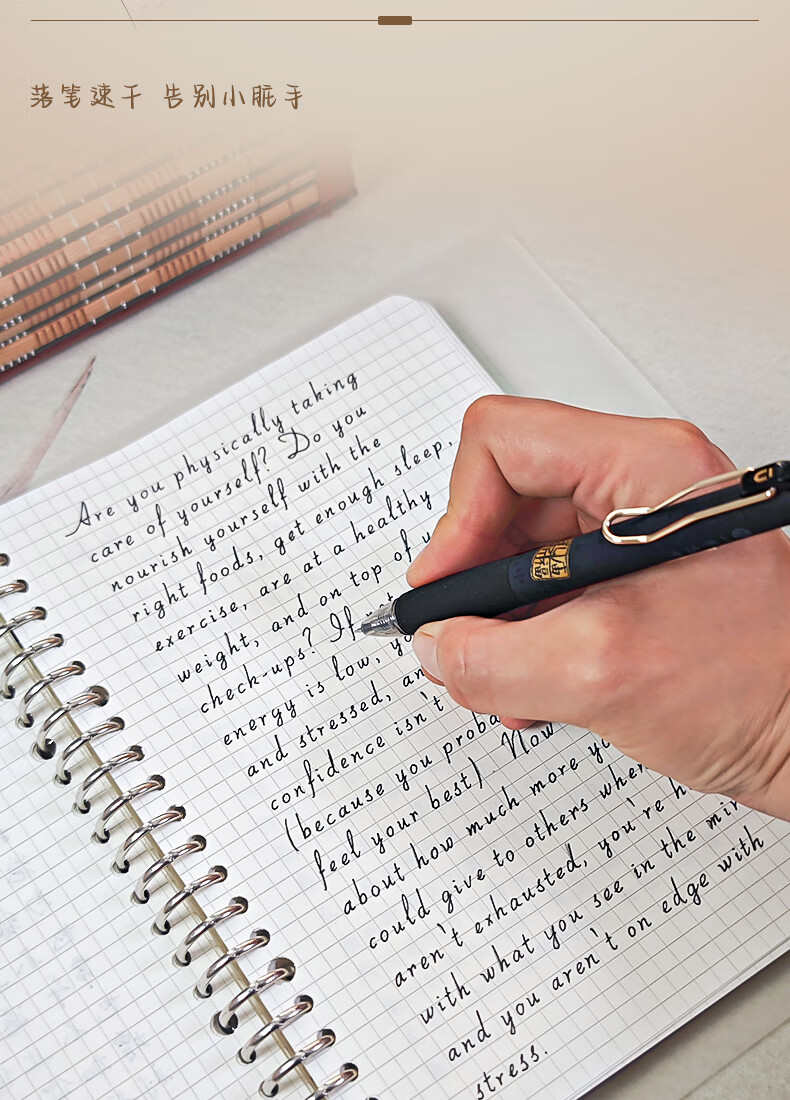 落笔速干 告别小脏手
Are you physically taking
care of yourself? Do you
nourish yourself with the
right foods, get enough sleep,
exercise, are at a healthy
weight, and on top of
check-ups? If
energy is low,
and stressed,
confidence isn't
(because you
feel your best). Now
about how much more
could give to others
aren't exhausted, you're
with what you see in the
and you aren't on edge with
stress.